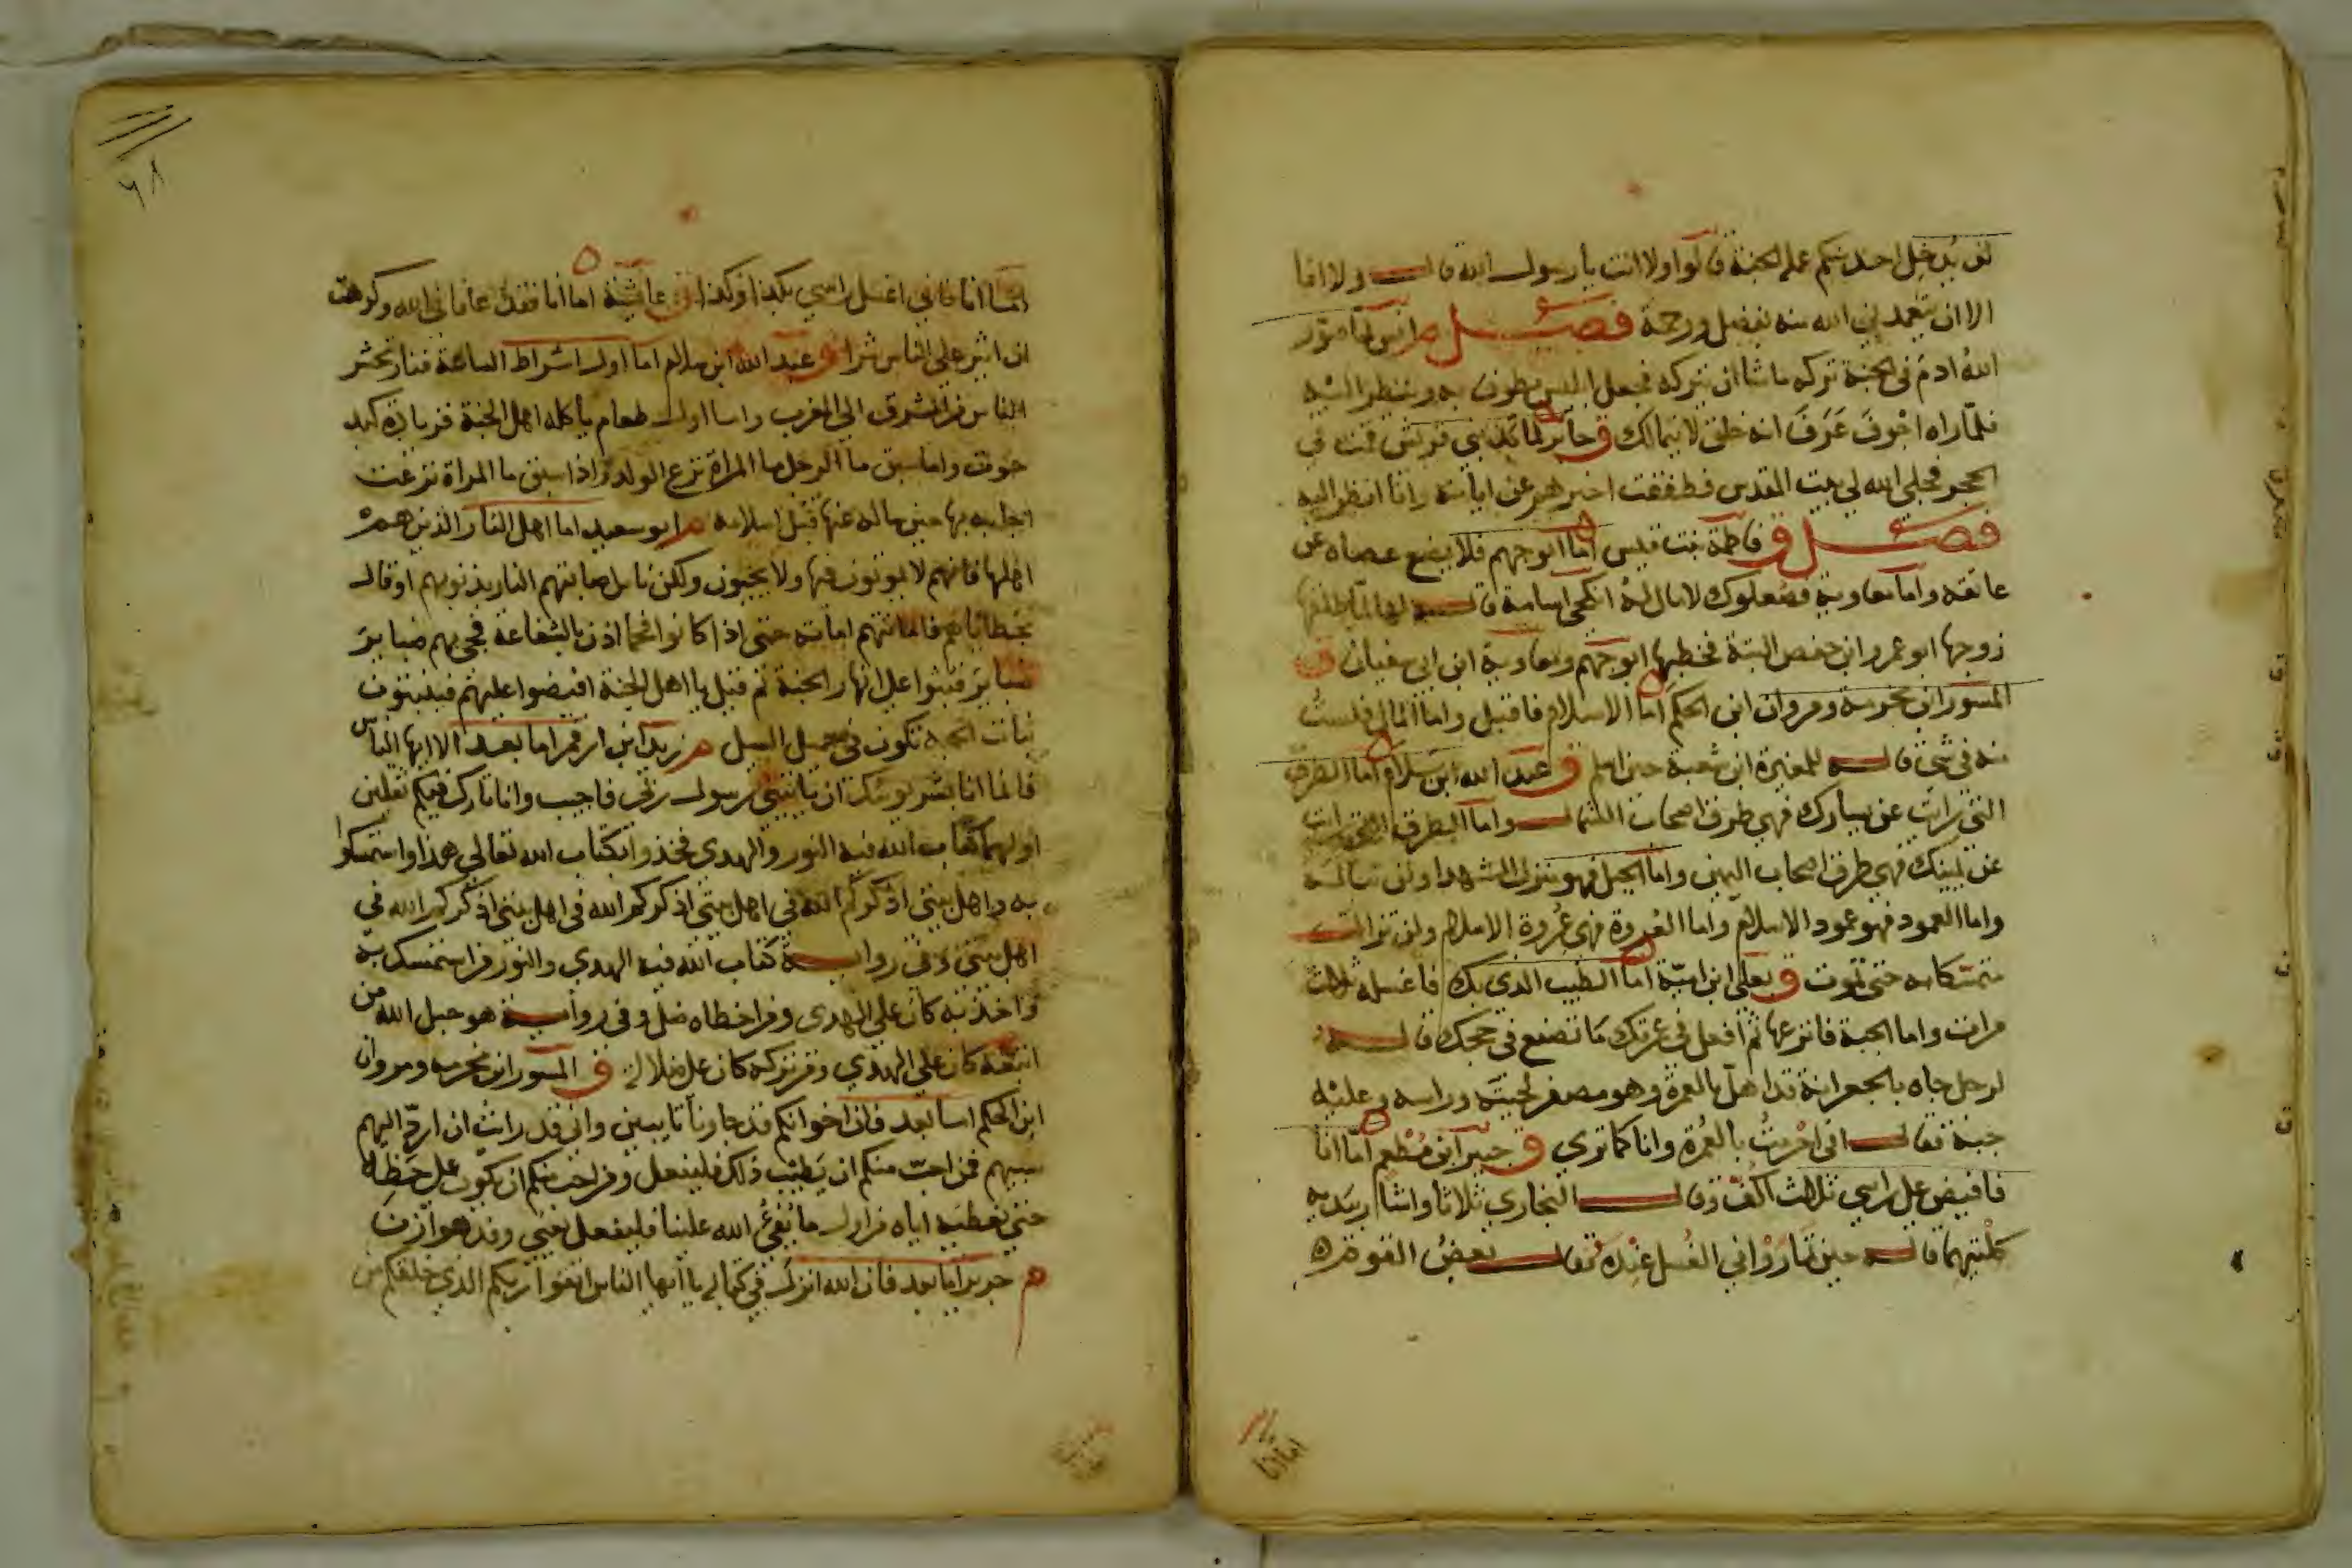 لن يدخل احدا منكم عمله الجنة قالوا ولا انت يا رسول الله قال ولا انا
الا ان يتغمدني الله منه بفضل ورحمة فصل م انس لما صور
الله ادم في الجنة تركه ما شا ان يتركه فجعل ابليس يطوف به وينظر اليه
فلما راه اجوف عرف انه خلق لا يتمالك ق جابر لما كذبني قريش قمت في
الحجر فجلى الله لي بيت المقدس فطفقت اخبرهم عن اياته وانا انظر اليه
فصل ق فاطمة بنت قيس اما ابو جهم فلا يضع عصاه عن
عاتقه واما معاوية فصعلوك لا مال له انكحي اسامة قاله لها لما طلقها
زوجها ابو عمرو ابن حفص البتة فخطبها ابو جهم ومعاوية ابن ابي سفيان ق
المسور ابن مخرمة ومروان ابن الحكم اما الاسلام فاقبل واما المال فلست
منه في شي قاله للمغيرة ابن شعبة حين اسلم ق عبد الله ابن سلام اما الطرق
التي رايت عن يسارك فهي طرق اصحاب الشمال واما الطرق التي رايت
عن يمينك فهي طرق اصحاب اليمين واما الجبل فهو منزل الشهدا ولن تناله
واما العمود فهو عمود الاسلام واما العروة فهي عروة الاسلام ولن تزال
متمسكا به حتى تموت ق يعلى ابن امية اما الطيب الذي بك فاغسله ثلاث
مرات واما الجبة فانزعها ثم افعل في عمرتك ما تصنع في حجك قاله
لرجل جاه بالجعرانة قد اهل بالعمرة وهو مصفر لحيته وراسه وعليه
جبة فقال اني احرمت بالعمرة وانا كما ترى ق جبير ابن مطعم اما انا
فافيض على راسي ثلاث اكف وقال البخاري ثلاثا واشار بيديه
كلتيهما قاله حين تماروا في الغسل عنده فقال بعض القوم
اما انا
اما انا فاني اغسل راسي بكذا وكذا ق عايشة اما انا فقد عافاني الله وكرهت
ان اثير على الناس شرا عبد الله ابن سلام اما اول اشراط الساعة فنار تحشر
الناس من المشرق الى المغرب واما اول طعام ياكله اهل الجنة فزيادة كبد
حوت واما سبق ما الرجل ما المراة نزع الولد واذا سبق ما المراة نزعت
اجابه بها حين ساله عنها قبل اسلامه م ابو سعيد اما اهل النار الذين هم
اهلها فانهم لا يموتون فيها ولا يحيون ولكن ناس اصابتهم النار بذنوبهم او قال
بخطاياهم فاماتتهم اماتة حتى اذا كانوا فحما اذن بالشفاعة فجي بهم ضباير
ضباير فبثوا على انهار الجنة ثم قيل يا اهل الجنة افيضوا عليهم فينبتون
نبات الحبة تكون في حميل السيل م زيد ابن ارقم اما بعد الا ايها الناس
فانما انا بشر يوشك ان ياتيني رسول ربي فاجيب وانا تارك فيكم ثقلين
اولهما كتاب الله فيه النور والهدى فخذوا بكتاب الله تعالى هذا واستمسكوا
به واهل بيتي اذكركم الله في اهل بيتي اذكركم الله في اهل بيتي اذكركم الله في
اهل بيتي وفي رواية كتاب الله فيه الهدى والنور من استمسك به
واخذ به كان على الهدى ومن اخطاه ضل وفي رواية هو حبل الله من
اتبعه كان على الهدى ومن تركه كان على ضلالة ق المسور ابن مخرمه ومروان
ابن الحكم اما بعد فان اخوانكم قد جاونا تايبين واني قد رايت ان ارد اليهم
سبيهم فمن احب منكم ان يطيب ذلك فليفعل ومن احب منكم ان يكون على حظه
حتى نعطيه اياه من اول ما يفي الله علينا فليفعل يعني وفد هوازن
م جرير اما بعد فان الله انزل في كتابه يا ايها الناس اتقوا ربكم الذي خلقكم من
٦٨